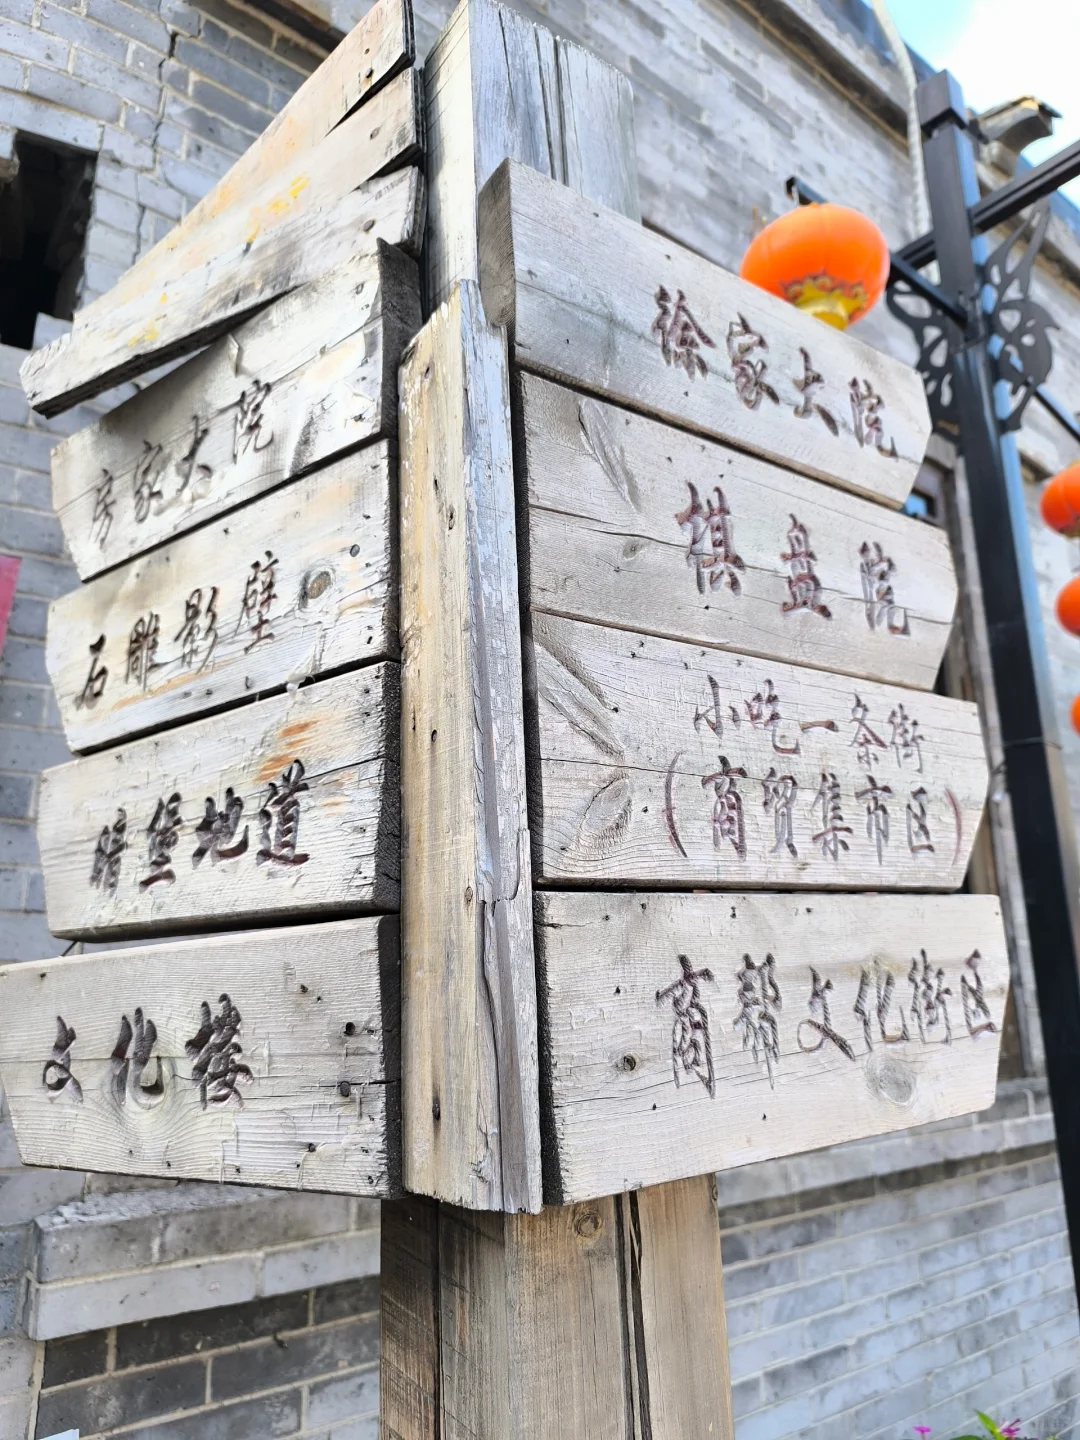 房家大院
石雕影壁
暗堡地道
文化楼
徐家大院
棋盘院
小吃一条街
(商贸集市区)
商帮文化街区